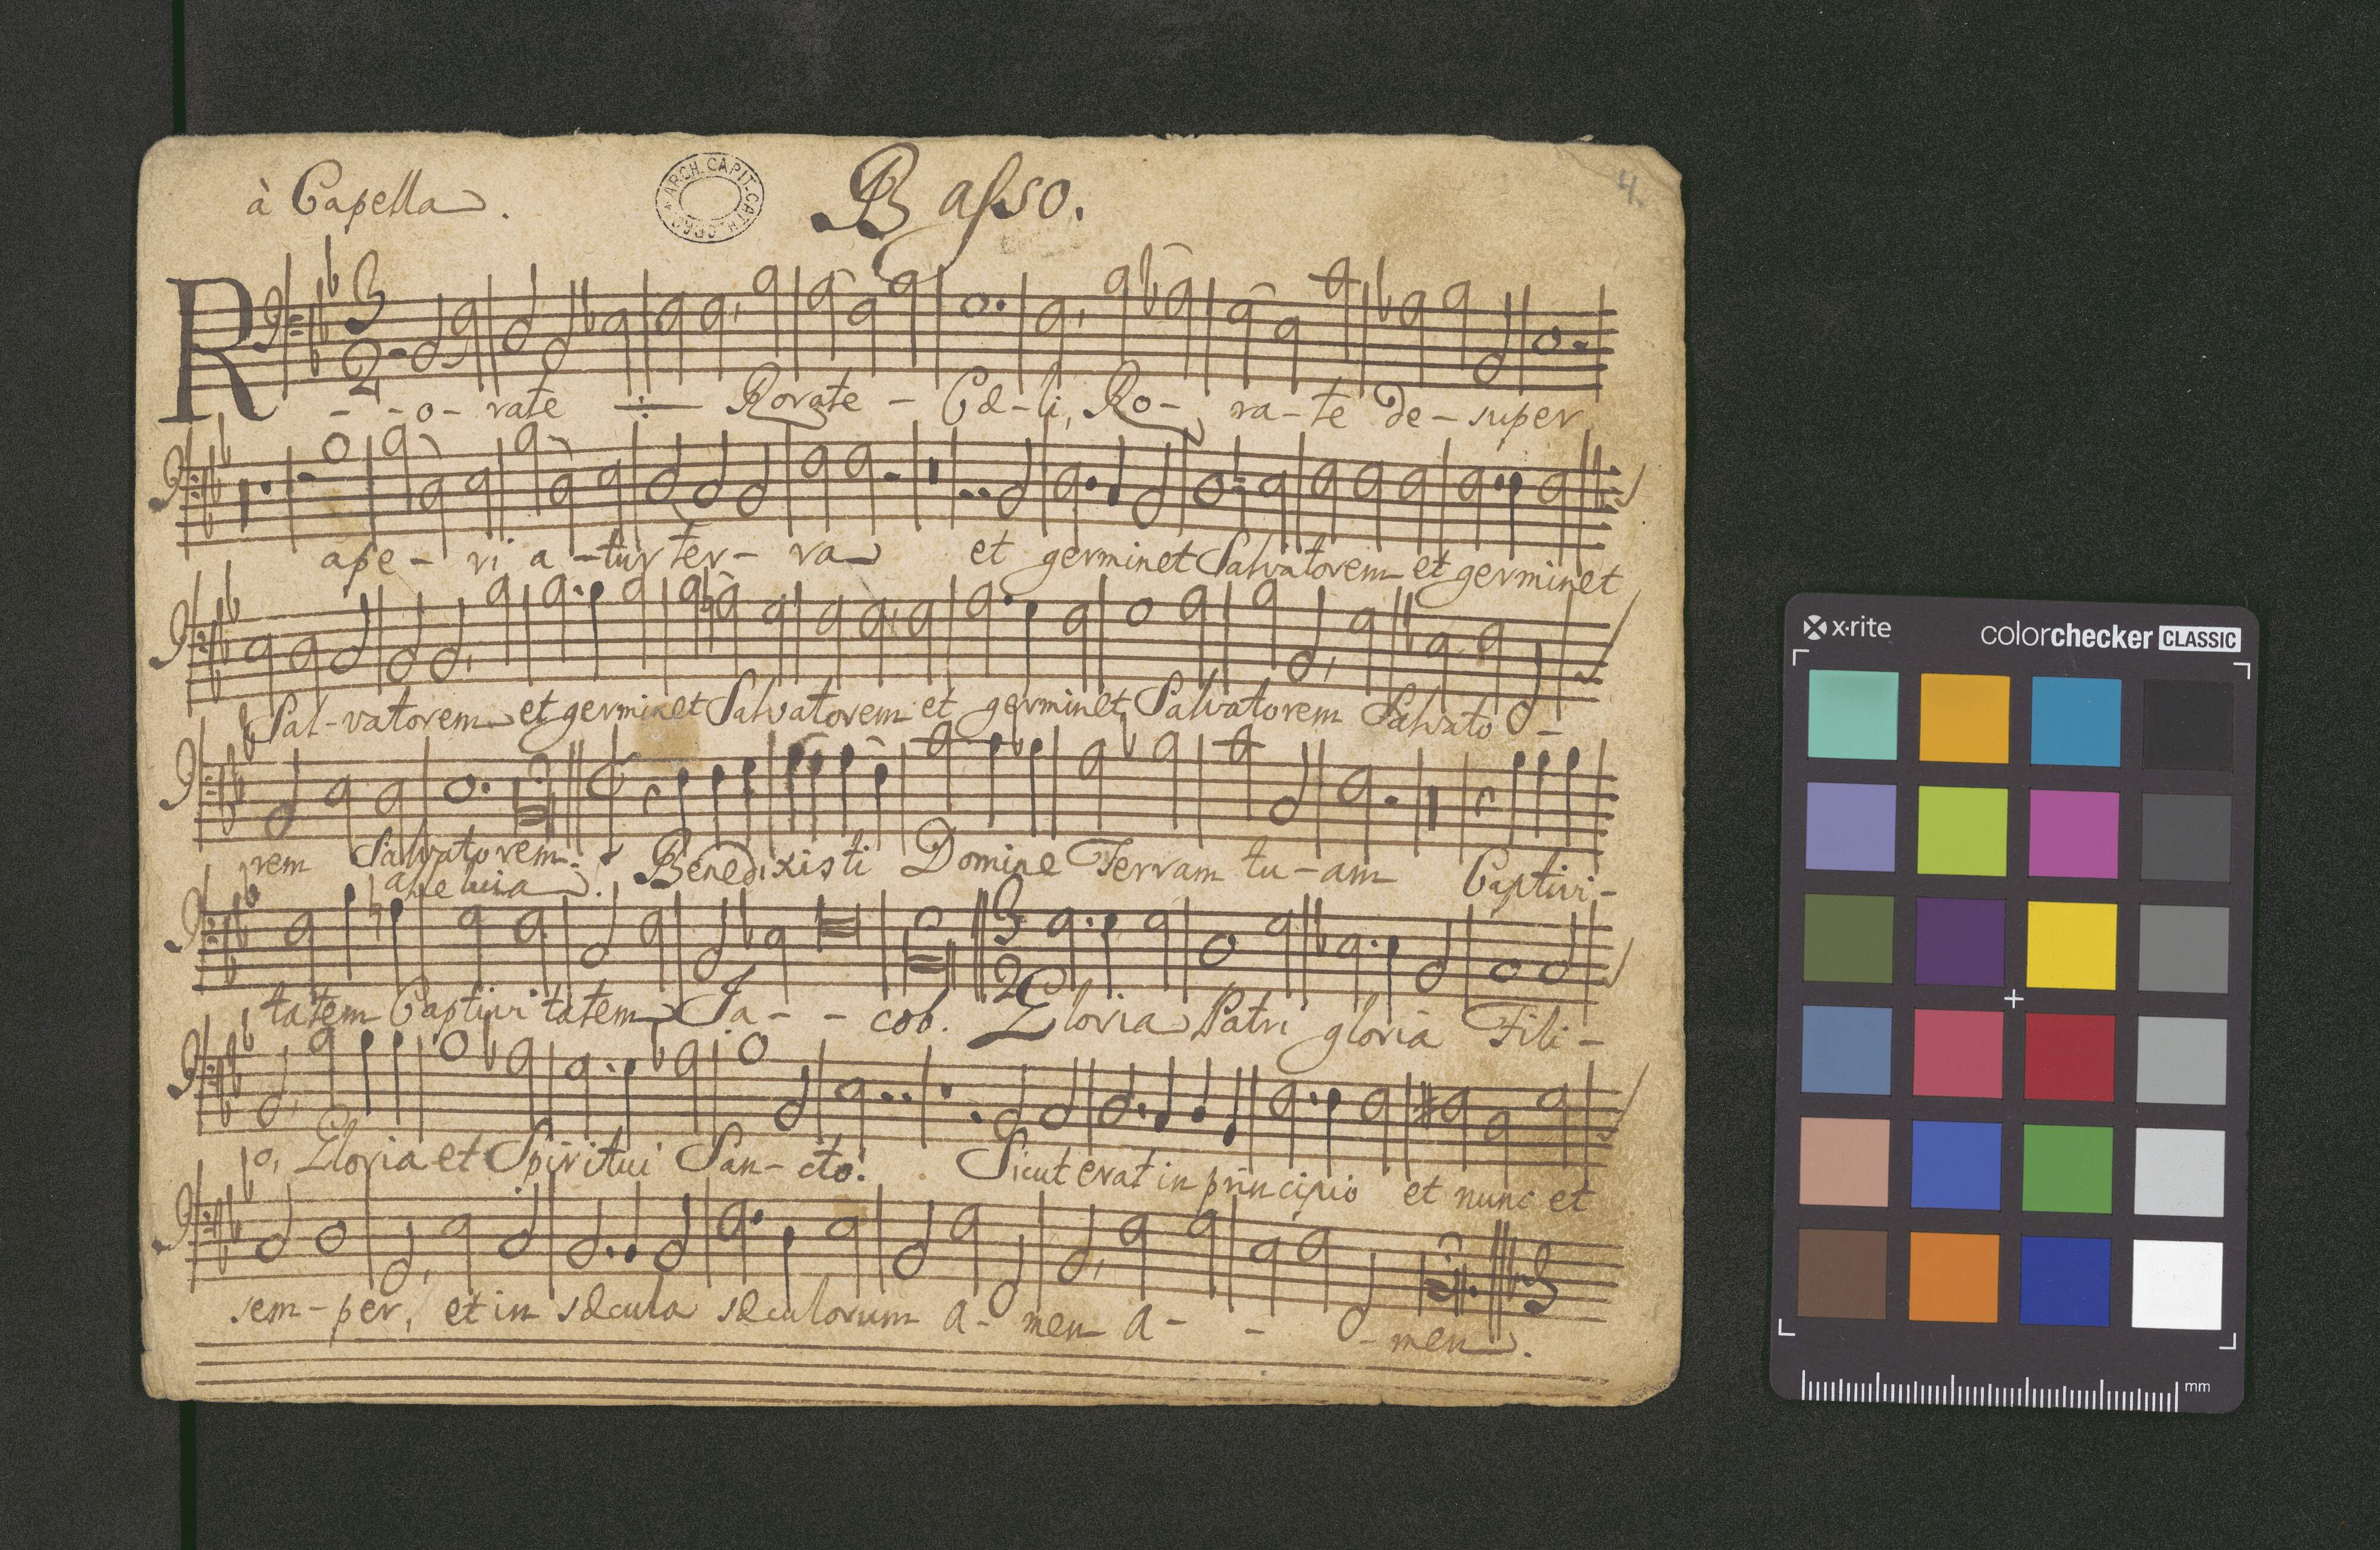 à Capella. Basso. 4.
ARCH. CAPIT. CATH. CRAC
3
2
R - - o - rate ÷ Rorate - Cæ - li, Ro - ra - te De - super
ape - ri a - tur ter - ra et germinet Salvatorem et germinet
Sal - vatorem et germinet Salvatorem et germinet Salvatorem Salvato -
rem Salvatorem. Benedixisti Domine Terram tu - am Captivi -
alleluia.
3
2
tatem Captivitatem Ja - - cob. Gloria Patri gloria Fili -
o, Gloria et Spiritui San - cto. Sicut erat in principio et nunc et
sem - per, et in sæcula sæculorum a - men a - - - men.
x-rite colorchecker CLASSIC
mm